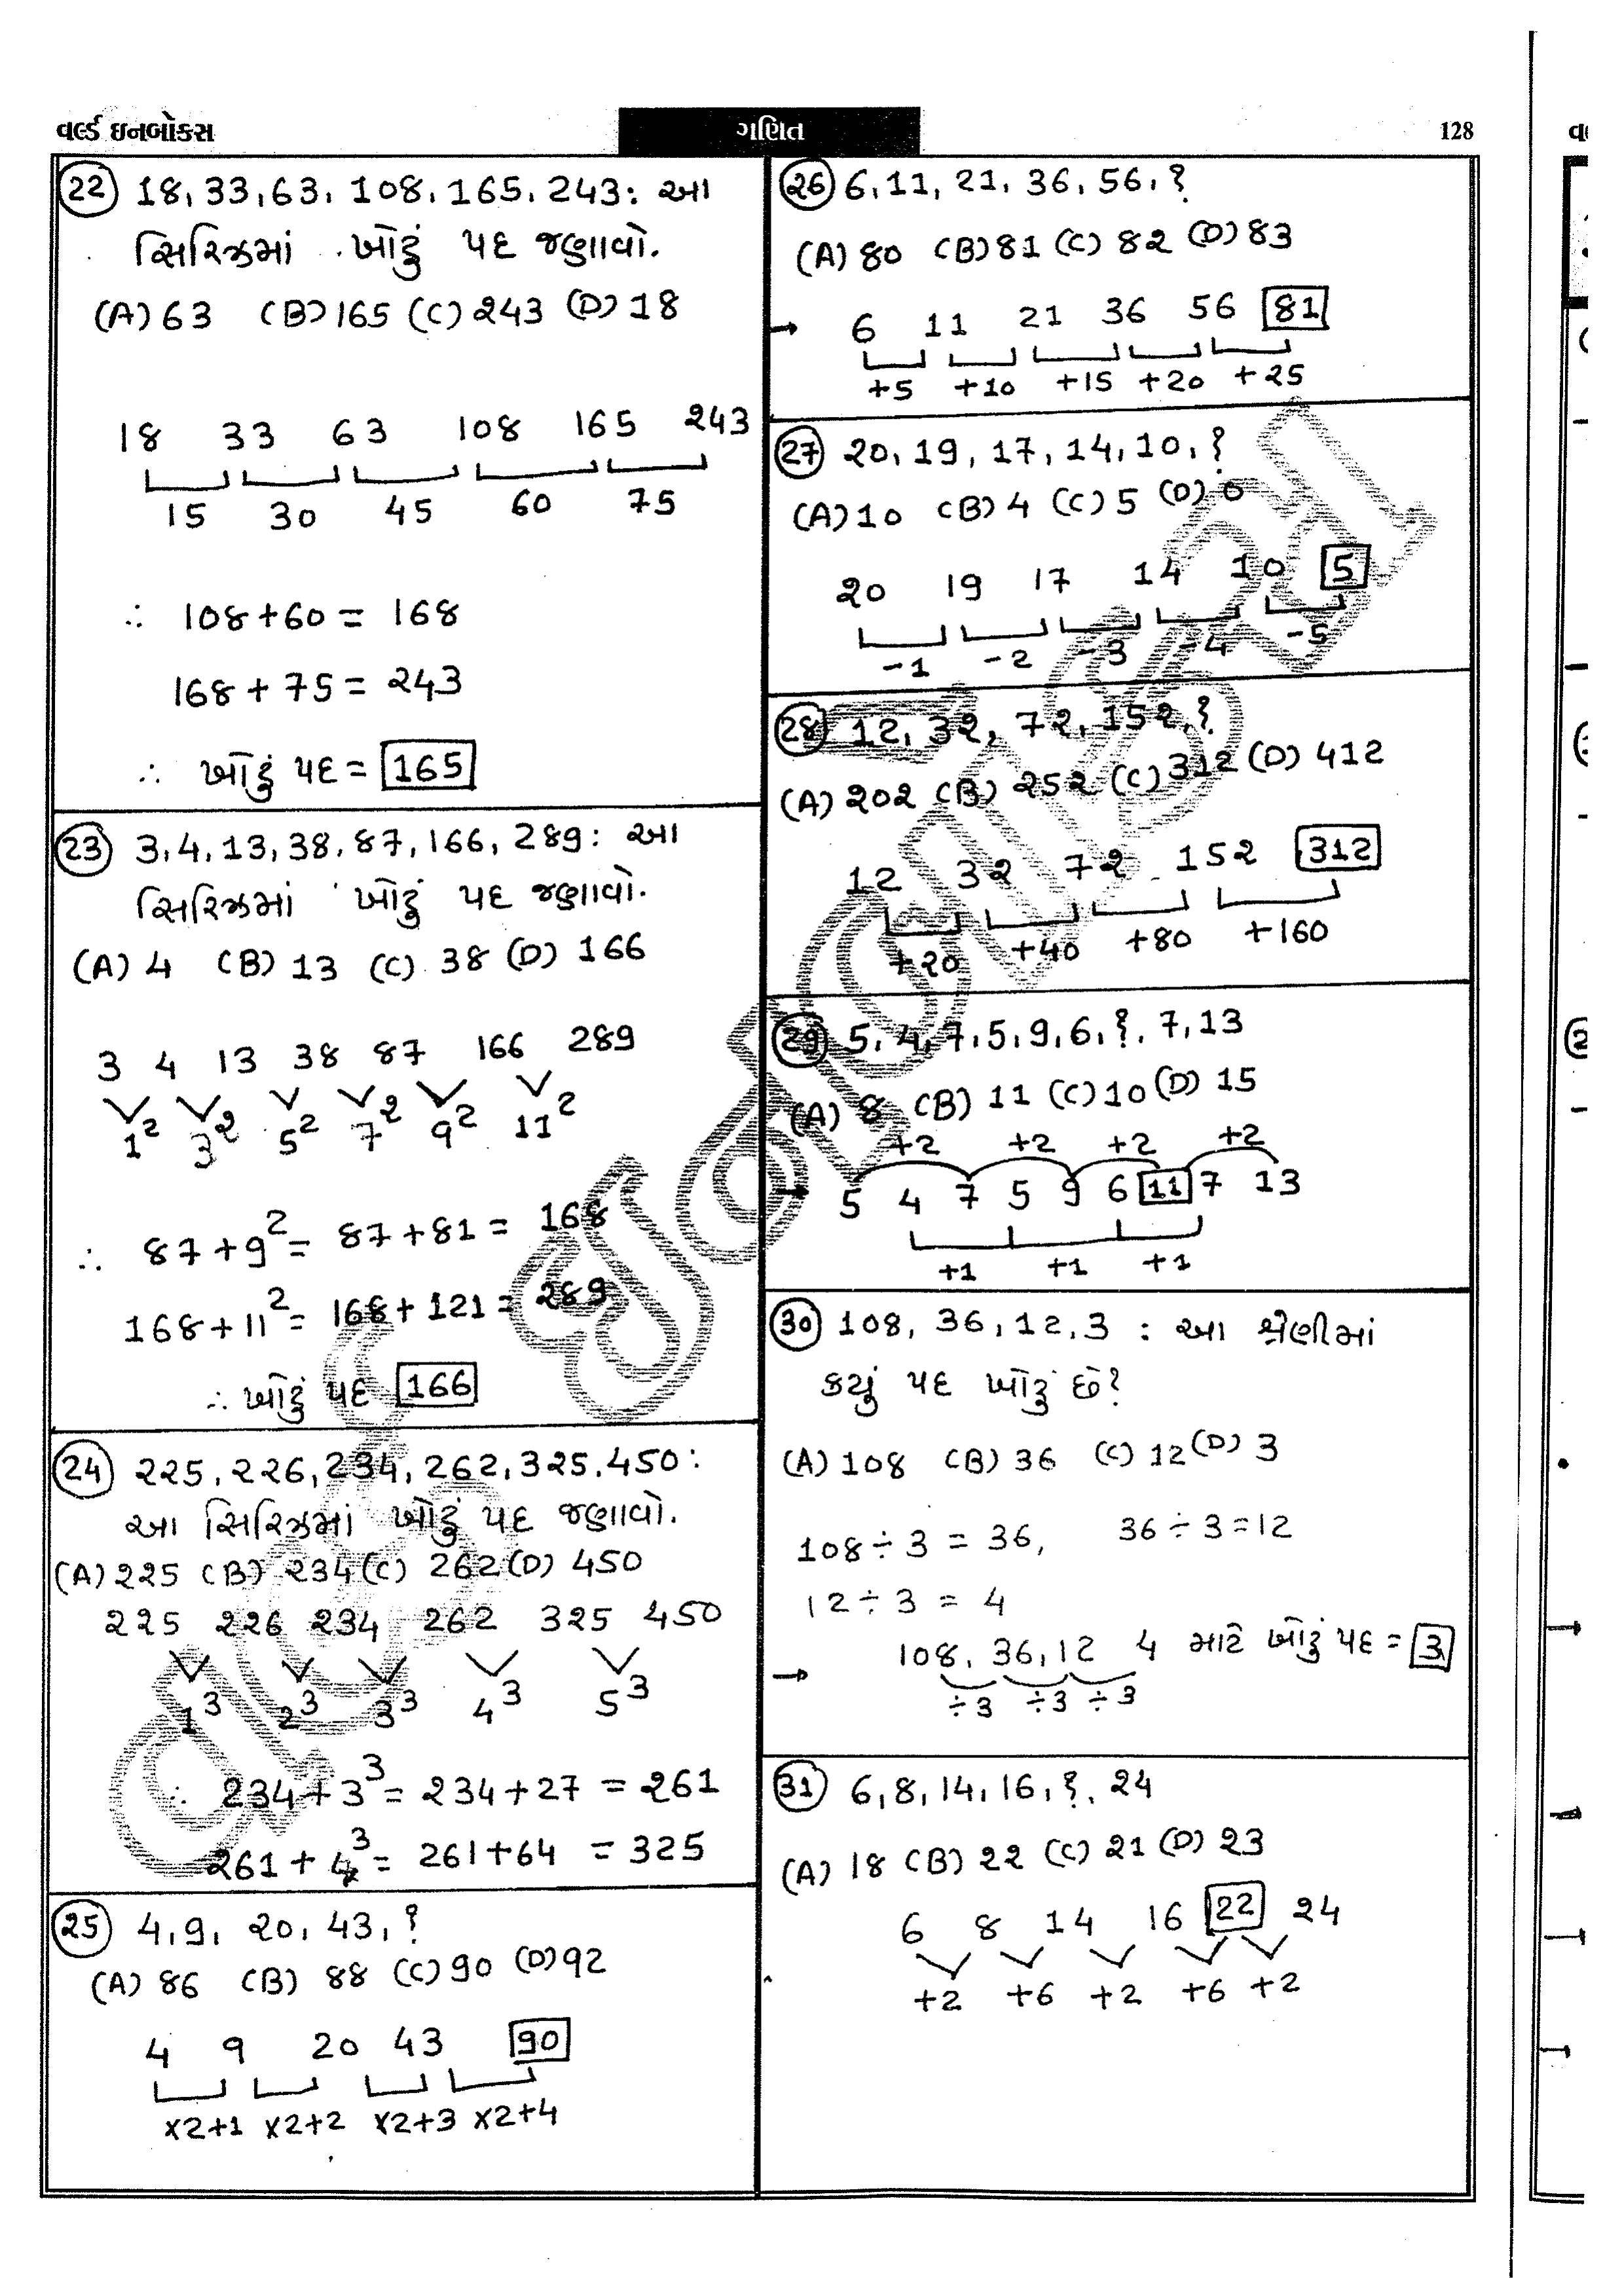 વર્લ્ડ ઇનબોક્સ
ગણિત
128
22 18, 33, 63, 108, 165, 243: આ
સિરિઝમાં ખોટું પદ જણાવો.
(A) 63 (B) 165 (C) 243 (D) 18
18 33 63 108 165 243
15 30 45 60 75
∴ 108+60 = 168
168 + 75 = 243
∴ ખોટું પદ = 165
23 3, 4, 13, 38, 87, 166, 289: આ
સિરિઝમાં ખોટું પદ જણાવો.
(A) 4 (B) 13 (C) 38 (D) 166
3 4 13 38 87 166 289
1² 3² 5² 7² 9² 11²
∴ 87 + 9² = 87 + 81 = 168
168 + 11² = 168 + 121 = 289
∴ ખોટું પદ 166
24 225, 226, 234, 262, 325, 450:
આ સિરિઝમાં ખોટું પદ જણાવો.
(A) 225 (B) 234 (C) 262 (D) 450
225 226 234 262 325 450
1³ 2³ 3³ 4³ 5³
∴ 234 + 3³ = 234 + 27 = 261
261 + 4³ = 261 + 64 = 325
25 4, 9, 20, 43, ?
(A) 86 (B) 88 (C) 90 (D) 92
4 9 20 43 90
×2+1 ×2+2 ×2+3 ×2+4
26 6, 11, 21, 36, 56, ?
(A) 80 (B) 81 (C) 82 (D) 83
→ 6 11 21 36 56 81
+5 +10 +15 +20 +25
27 20, 19, 17, 14, 10, ?
(A) 10 (B) 4 (C) 5 (D) 0
20 19 17 14 10 5
-1 -2 -3 -4 -5
28 12, 32, 72, 152, ?
(A) 202 (B) 252 (C) 312 (D) 412
12 32 72 152 312
+20 +40 +80 +160
29 5, 4, 7, 5, 9, 6, ?, 7, 13
(A) 8 (B) 11 (C) 10 (D) 15
+2 +2 +2 +2
→ 5 4 7 5 9 6 11 7 13
+1 +1 +1
30 108, 36, 12, 3 : આ શ્રેણીમાં
કયું પદ ખોટું છે?
(A) 108 (B) 36 (C) 12 (D) 3
108 ÷ 3 = 36, 36 ÷ 3 = 12
12 ÷ 3 = 4
→ 108, 36, 12 4 માટે ખોટું પદ = 3
÷3 ÷3 ÷3
31 6, 8, 14, 16, ?, 24
(A) 18 (B) 22 (C) 21 (D) 23
6 8 14 16 22 24
+2 +6 +2 +6 +2